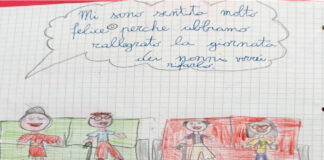 Mi sono sentita molto
felice perche abbiamo
rallegrato la giornata
dei nonni vorrei
rifarlo.